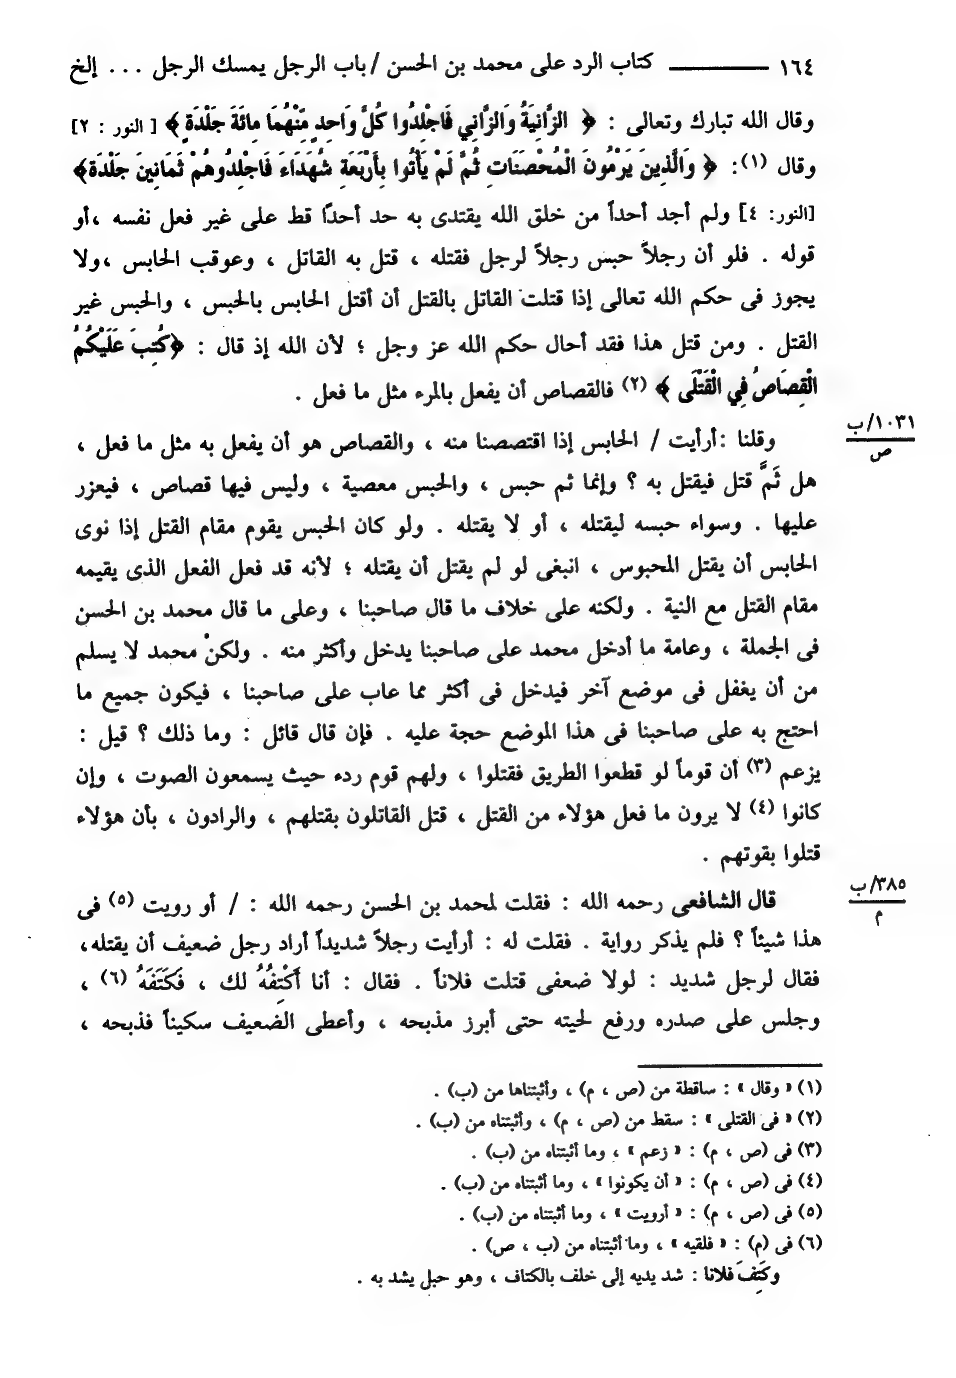 ١٦٤ ـــــــــ كتاب الرد على محمد بن الحسن / باب الرجل يمسك الرجل ... إلخ
وقال الله تبارك وتعالى : ﴿ الزَّانِيَةُ وَالزَّانِي فَاجْلِدُوا كُلَّ وَاحِدٍ مِّنْهُمَا مِائَةَ جَلْدَةٍ ﴾ [ النور : ٢]
وقال (١): ﴿ وَالَّذِينَ يَرْمُونَ الْمُحْصَنَاتِ ثُمَّ لَمْ يَأْتُوا بِأَرْبَعَةِ شُهَدَاءَ فَاجْلِدُوهُمْ ثَمَانِينَ جَلْدَةً﴾
[النور: ٤] ولم أجد أحداً من خلق الله يقتدى به حد أحدًا قط على غير فعل نفسه ،أو
قوله . فلو أن رجلاً حبس رجلاً لرجل فقتله ، قتل به القاتل ، وعوقب الحابس ،ولا
يجوز فى حكم الله تعالى إذا قتلت القاتل بالقتل أن أقتل الحابس بالحبس ، والحبس غير
القتل . ومن قتل هذا فقد أحال حكم الله عز وجل ؛ لأن الله إذ قال : ﴿كُتِبَ عَلَيْكُمُ
الْقِصَاصُ فِي الْقَتْلَى ﴾ (٢) فالقصاص أن يفعل بالمرء مثل ما فعل .
وقلنا :أرأيت / الحابس إذا اقتصصنا منه ، والقصاص هو أن يفعل به مثل ما فعل ،
١٠٣١/ب
ص
هل ثَمَّ قتل فيقتل به ؟ وإنما ثم حبس ، والحبس معصية ، وليس فيها قصاص ، فيعزر
عليها . وسواء حبسه ليقتله ، أو لا يقتله . ولو كان الحبس يقوم مقام القتل إذا نوى
الحابس أن يقتل المحبوس ، انبغى لو لم يقتل أن يقتله ؛ لأنه قد فعل الفعل الذى يقيمه
مقام القتل مع النية . ولكنه على خلاف ما قال صاحبنا ، وعلى ما قال محمد بن الحسن
فى الجملة ، وعامة ما أدخل محمد على صاحبنا يدخل وأكثر منه . ولكنْ محمد لا يسلم
من أن يغفل فى موضع آخر فيدخل فى أكثر مما عاب على صاحبنا ، فيكون جميع ما
احتج به على صاحبنا فى هذا الموضع حجة عليه . فإن قال قائل : وما ذلك ؟ قيل :
يزعم (٣) أن قوماً لو قطعوا الطريق فقتلوا ، ولهم قوم ردء حيث يسمعون الصوت ، وإن
كانوا (٤) لا يرون ما فعل هؤلاء من القتل ، قتل القاتلون بقتلهم ، والرادون ، بأن هؤلاء
قتلوا بقوتهم .
قال الشافعى رحمه الله : فقلت لمحمد بن الحسن رحمه الله : / أو رويت (٥) فى
٣٨٥/ب
م
هذا شيئاً ؟ فلم يذكر رواية . فقلت له : أرأيت رجلاً شديداً أراد رجل ضعيف أن يقتله،
فقال لرجل شديد : لولا ضعفى قتلت فلاناً . فقال : أنا أَكْتِفُهُ لك ، فَكَتَفَهُ (٦) ،
وجلس على صدره ورفع لحيته حتى أبرز مذبحه ، وأعطى الضعيف سكيناً فذبحه ،
(١) « وقال » : ساقطة من (ص ، م) ، وأثبتناها من (ب) .
(٢) « فى القتلى » : سقط من (ص ، م) ، وأثبتناه من (ب) .
(٣) فى (ص ، م) : « زعم » ، وما أثبتناه من (ب) .
(٤) فى (ص ، م) : « أن يكونوا » ، وما أثبتناه من (ب) .
(٥) فى (ص ، م) : « أرويت » ، وما أثبتناه من (ب) .
(٦) فى (م) : « فلقيه » ، وما أثبتناه من (ب ، ص) .
وكَتِفَ فلانا : شد يديه إلى خلف بالكتاف ، وهو حبل يشد به .